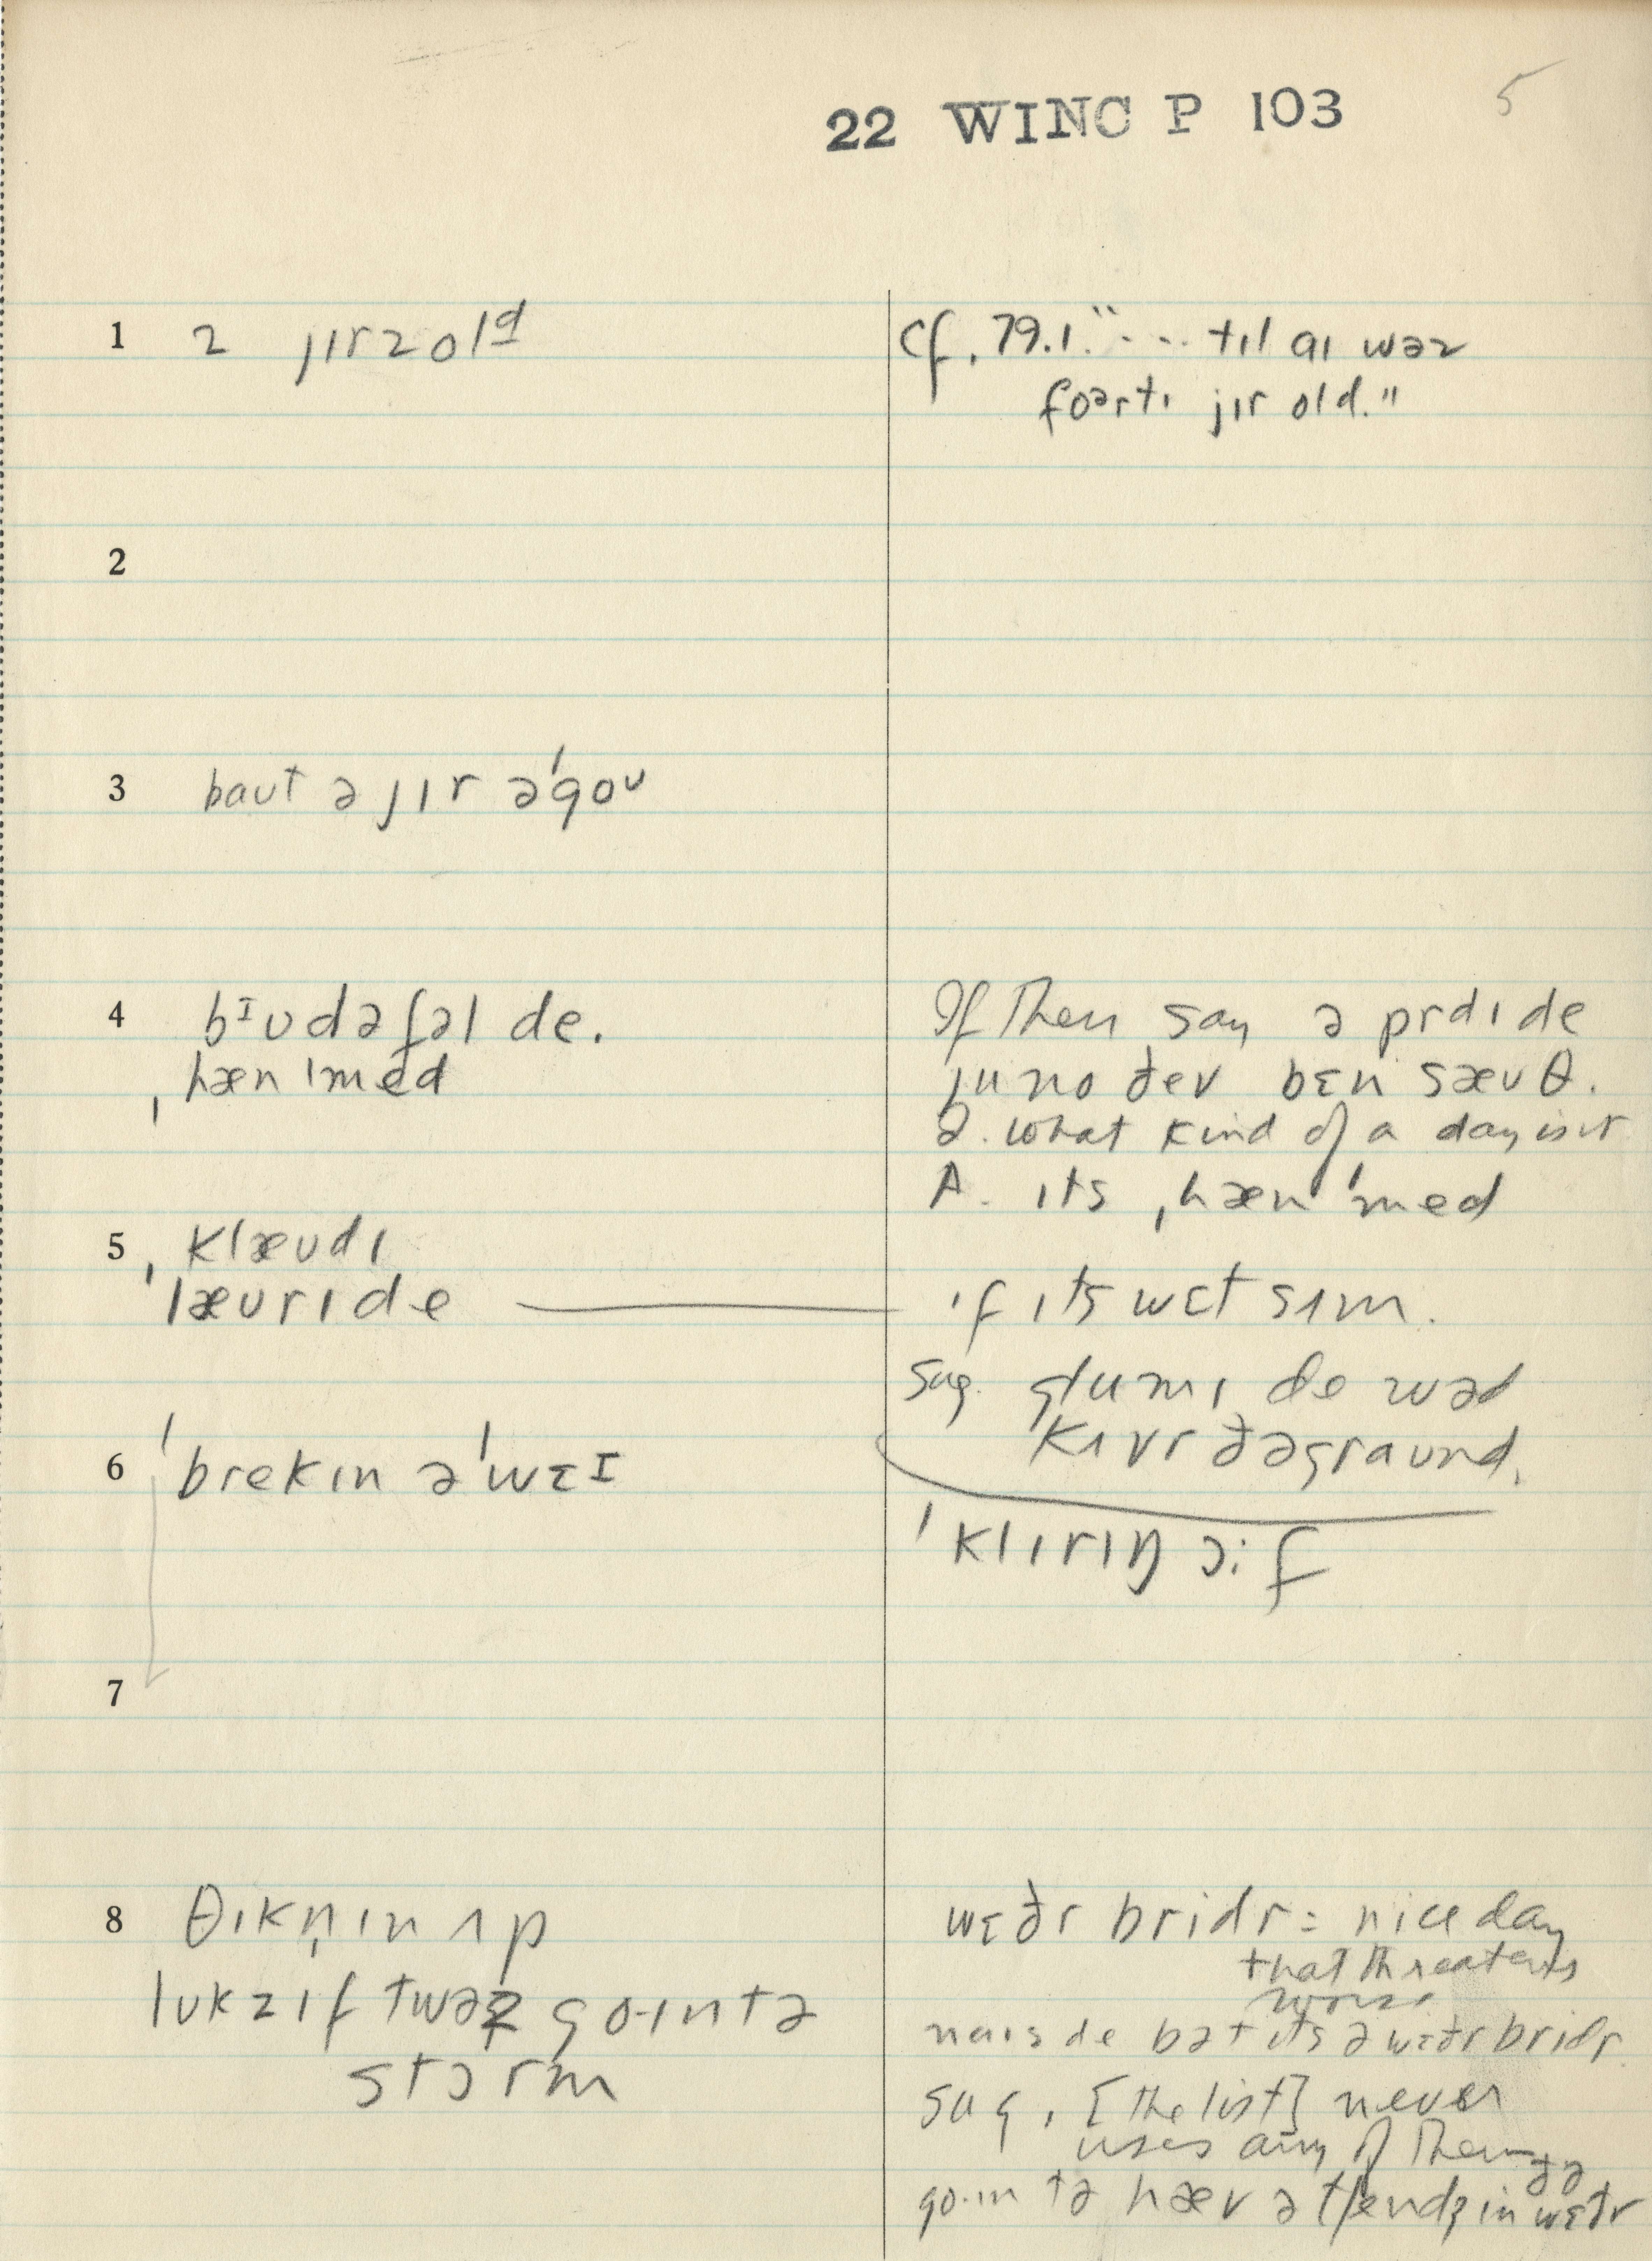 22 WINC P 103 5
1 2 jɪrz olᵈ
cf. 79.1. "... tɪl aɪ wəz
foərtɪ jɪr old."
2
3 baut ə jɪr ə'goᴜ
4 bɪʊdəfəl de.
ˌhæn'med
If Then say ə prdɪ de
ju no ðev bɛn sæʊθ.
Q. what kind of a day is it
A. ɪts ˌhæn'med
5 ˌklæʊdɪ
'læʊrɪ de
ɪf ɪts wɛt sʌm.
sug. glumɪ de wəd
kʌvr ðə graʊnd.
6 'brekɪn ə'wɛɪ
'klɪrɪŋ ɔːf
7
8 θɪkn̩ɪn ʌp
lʊkz ɪf twəz go·ɪn tə
stɔrm
wɛðr bridr = nice day
that threatens
worse
naɪs de bət ɪts ə wɛðr bridr.
sug. [the list] never
uses any of them
go·ɪn tə hæv ə tʃendʒ in ðə
wɛðr